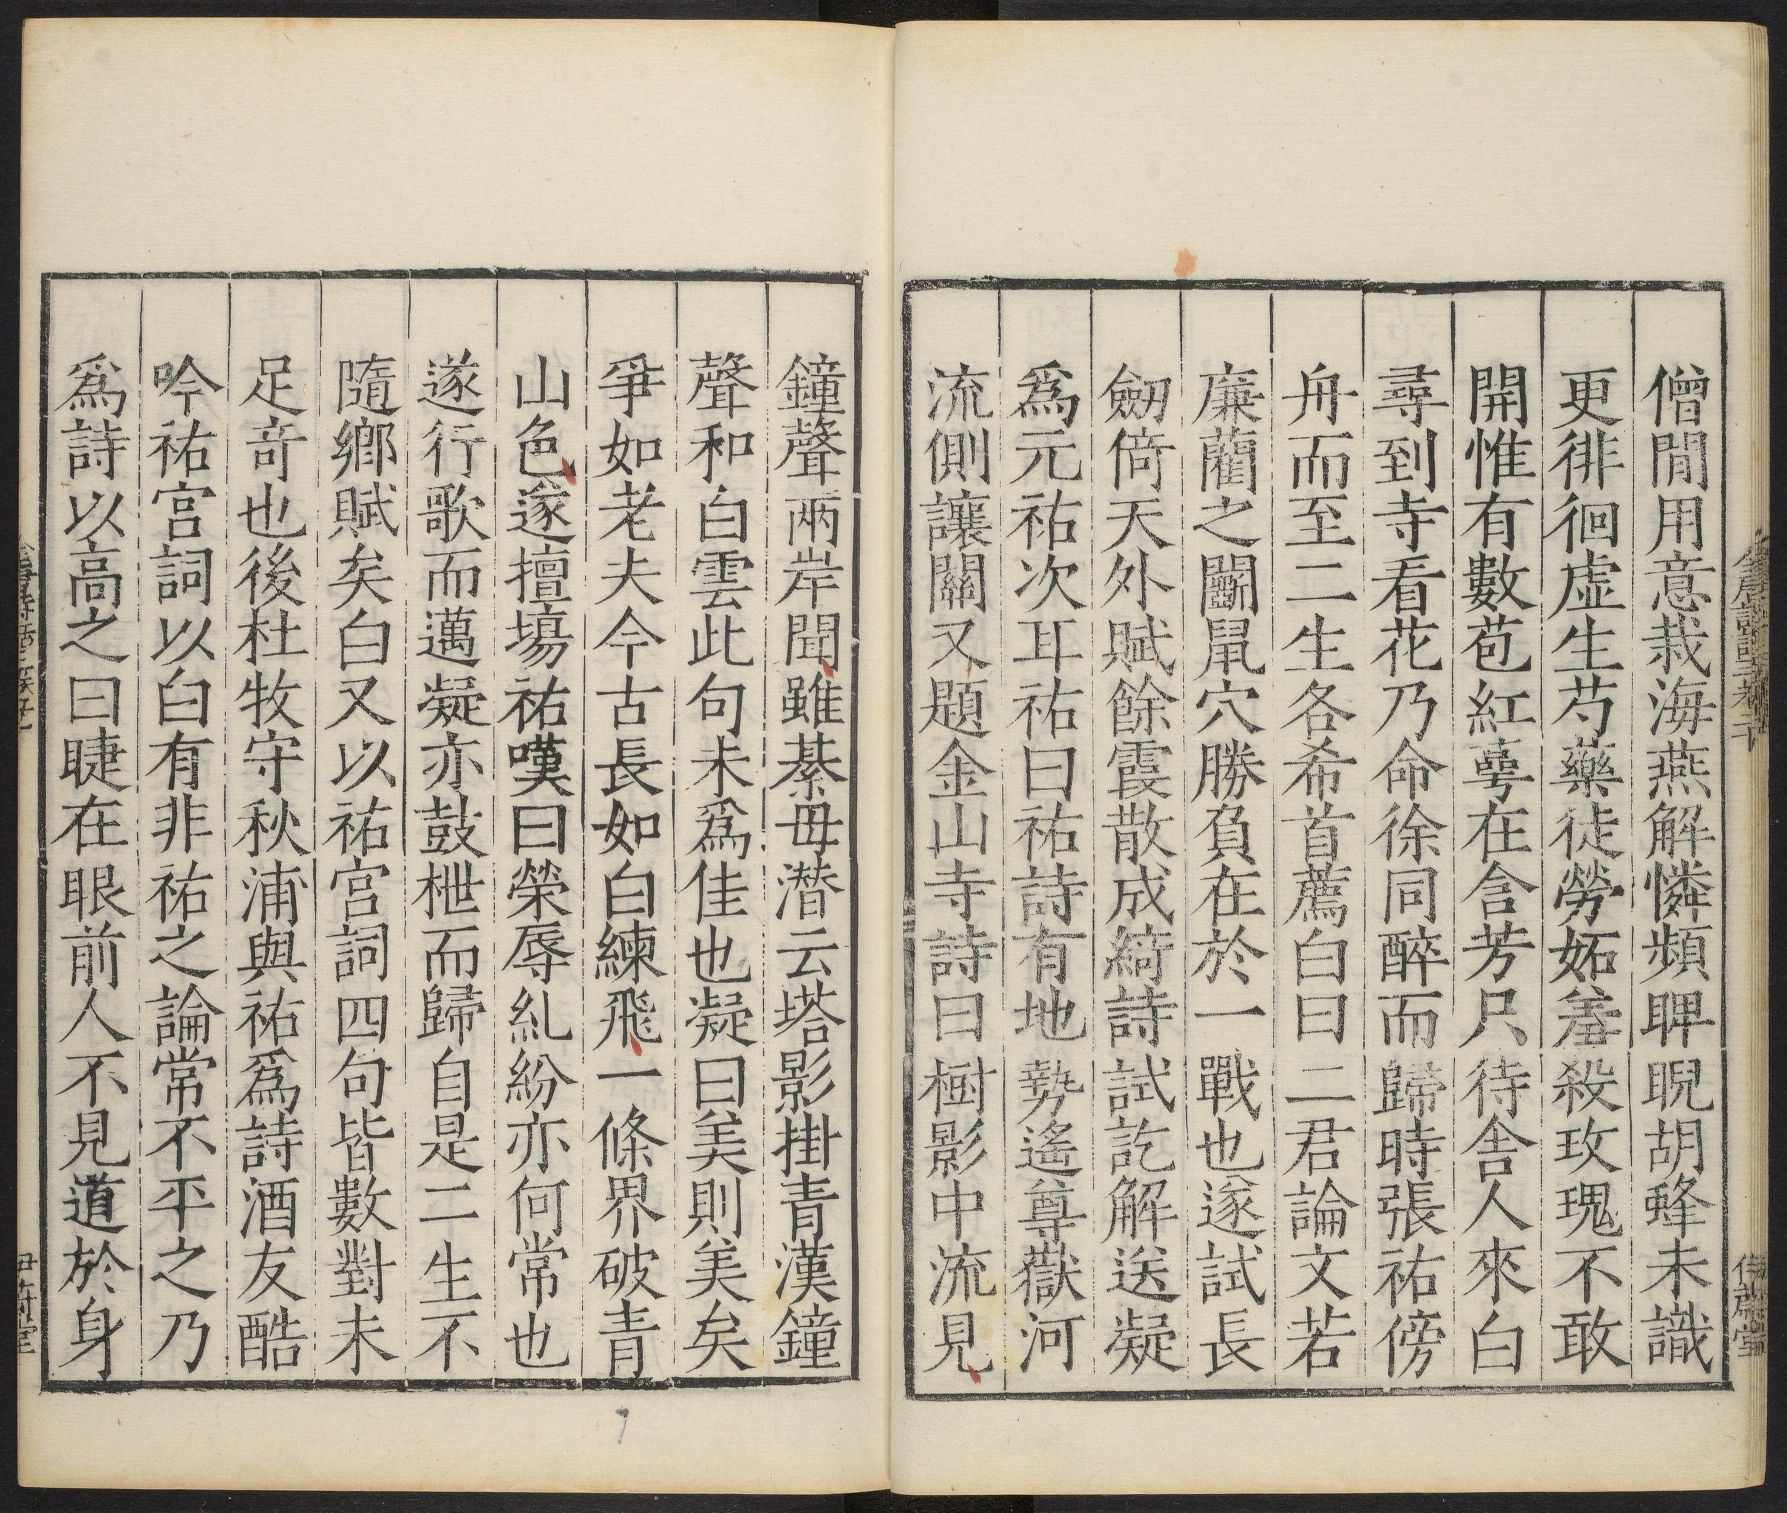 僧閒用意栽海燕解憐頻睥睨胡蜂未識
更徘徊虛生芍藥徒勞妬羞殺玫瑰不敢
開惟有數苞紅蕚在含芳只待舍人來白
尋到寺看花乃命徐同醉而歸時張祐傍
舟而至二生各希首薦白曰二君論文若
廉藺之鬭鼠穴勝負在於一戰也遂試長
劒倚天外賦餘霞散成綺詩試訖解送凝
爲元祐次耳祐曰祐詩有地勢遙尊嶽河
流側讓關又題金山寺詩曰樹影中流見
鐘聲兩岸聞雖綦毋潛云塔影掛青漢鐘
聲和白雲此句未爲佳也凝曰美則美矣
爭如老夫今古長如白練飛一條界破青
山色遂擅塲祐嘆曰榮辱糺紛亦何常也
遂行歌而邁凝亦鼓枻而歸自是二生不
隨鄉賦矣白又以祐宮詞四句皆數對未
足竒也後杜牧守秋浦與祐爲詩酒友酷
吟祐宮詞以白有非祐之論常不平之乃
爲詩以高之曰睫在眼前人不見道於身